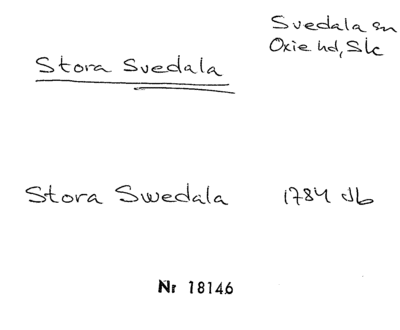 Svedala sn
Oxie hd, Sk
Stora Svedala
Stora Swedala 1784 Jb
Nr 18146